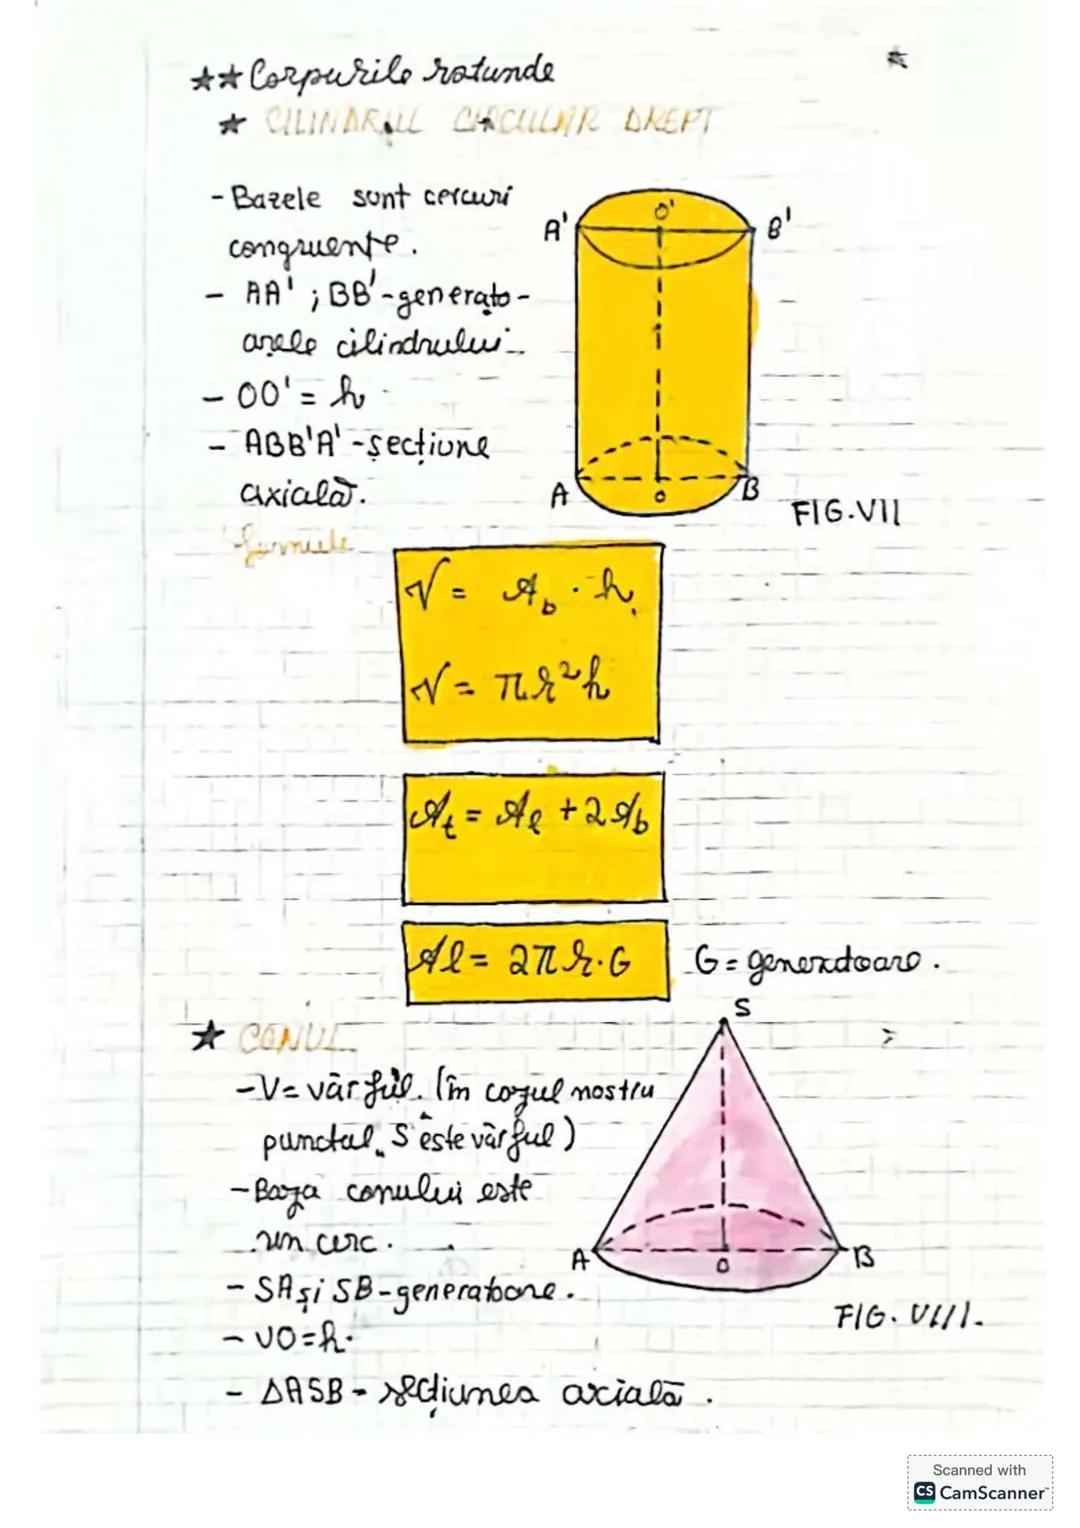 ★★ Corpurile rotunde
★ CILINDRUL CIRCULAR DREPT
- Bazele sunt cercuri
congruente.
A'
O'
B'
- AA' ; BB'-generato-
arele cilindrului.
- OO' = h
- ABB'A' -secțiune
axială.
A
O
B
FIG.VII
formule
V = Ab · h
V = πr²h
At = Al + 2Ab
Al = 2πr·G
G = generatoare.
S
★ CONUL
-V= vârful. (în cazul nostru
punctul „S" este vârful)
-Baza conului este
un cerc.
A
O
B
- SA și SB-generatoare.
FIG. VIII.
- VO=h.
- ΔASB - secțiunea axială.
Scanned with
CS CamScanner